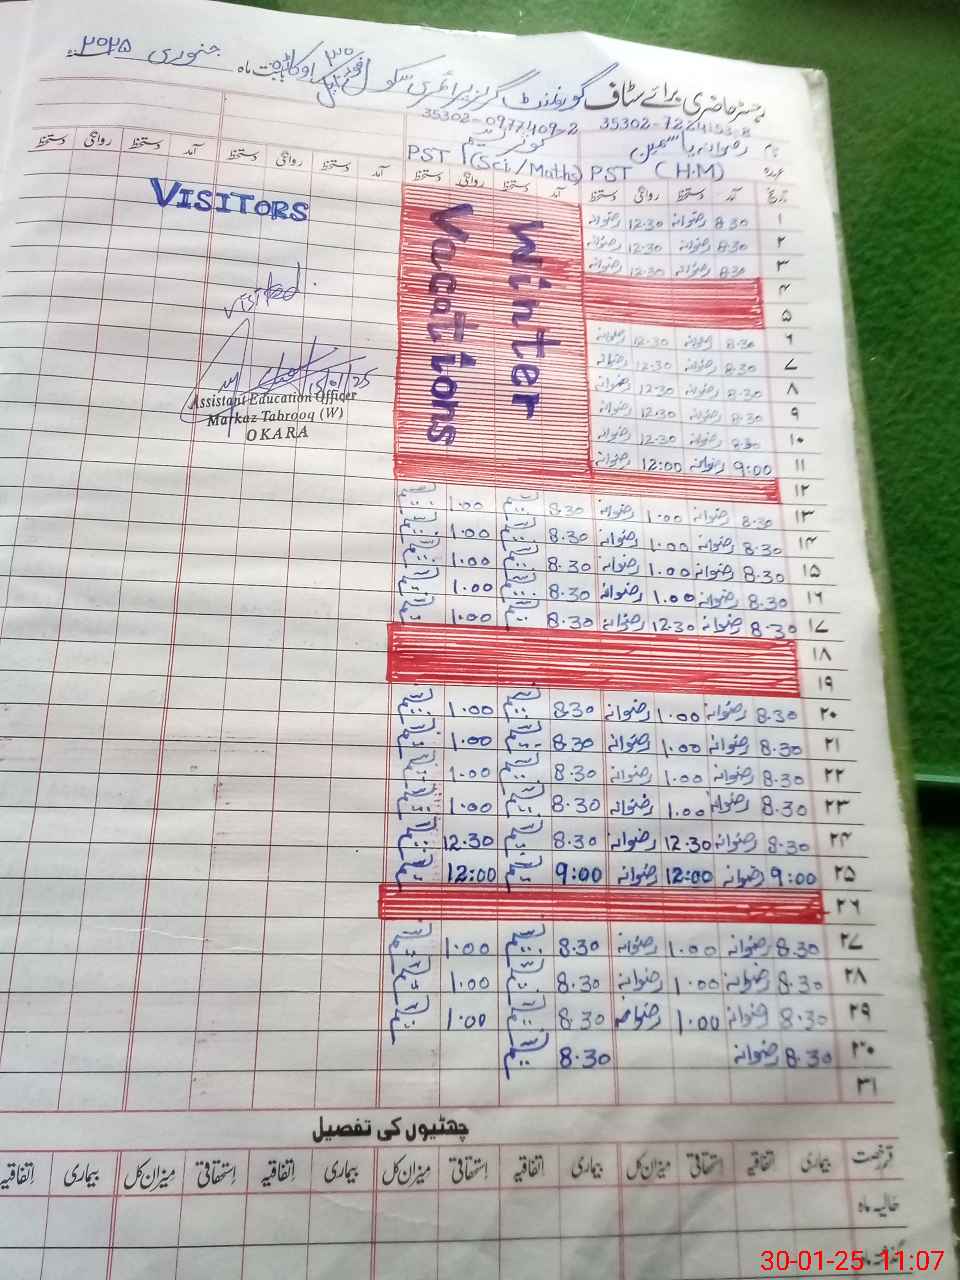 رجسٹر حاضری برائے سٹاف گورنمنٹ گرلز پرائمری سکول بابت ماہ جنوری ۲۰۲۵
35302-0977409-2
نام رضوانہ یاسمین
عہدہ PST (H.M) PST (Sci./Maths)
تاریخ آمد دستخط روانگی دستخط آمد دستخط روانگی دستخط آمد دستخط روانگی دستخط آمد دستخط روانگی دستخط
VISITORS
Winter
Vacations
visited
15/01/25
Assistant Education Officer
Markaz Tabrooq (W)
OKARA
۱ 8.30 رضوانہ 12.30 رضوانہ
۲ 8.30 رضوانہ 12.30 رضوانہ
۳ 8.30 رضوانہ 12.30 رضوانہ
۴
۵
۶ 8.30 رضوانہ 12.30 رضوانہ
۷ 8.30 رضوانہ 12.30 رضوانہ
۸ 8.30 رضوانہ 12.30 رضوانہ
۹ 8.30 رضوانہ 12.30 رضوانہ
۱۰ 8.30 رضوانہ 12.30 رضوانہ
۱۱ 9:00 رضوانہ 12:00 رضوانہ
۱۲
۱۳ 8.30 رضوانہ 1.00 رضوانہ 8.30 1.00
۱۴ 8.30 رضوانہ 1.00 رضوانہ 8.30 1.00
۱۵ 8.30 رضوانہ 1.00 رضوانہ 8.30 1.00
۱۶ 8.30 رضوانہ 1.00 رضوانہ 8.30 1.00
۱۷ 8.30 رضوانہ 12.30 رضوانہ 8.30 1.00
۱۸
۱۹
۲۰ 8.30 رضوانہ 1.00 رضوانہ 8.30 1.00
۲۱ 8.30 رضوانہ 1.00 رضوانہ 8.30 1.00
۲۲ 8.30 رضوانہ 1.00 رضوانہ 8.30 1.00
۲۳ 8.30 رضوانہ 1.00 رضوانہ 8.30 1.00
۲۴ 8.30 رضوانہ 12.30 رضوانہ 8.30 12.30
۲۵ 9:00 رضوانہ 12:00 رضوانہ 9:00 12:00
۲۶
۲۷ 8.30 رضوانہ 1.00 رضوانہ 8.30 1.00
۲۸ 8.30 رضوانہ 1.00 رضوانہ 8.30 1.00
۲۹ 8.30 رضوانہ 1.00 رضوانہ 8.30 1.00
۳۰ 8.30 رضوانہ 8.30
۳۱
چھٹیوں کی تفصیل
قسم رخصت بیماری اتفاقیہ استحقاقی میزان کل بیماری اتفاقیہ استحقاقی میزان کل بیماری اتفاقیہ استحقاقی میزان کل بیماری اتفاقیہ
حالیہ ماہ
30-01-25 11:07